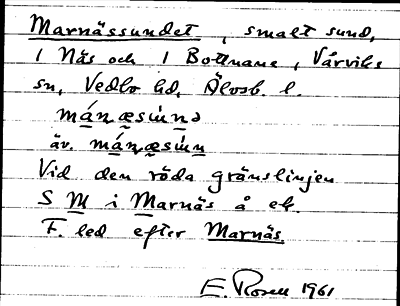 Marnässundet, smalt sund,
1 Näs och 1 Bottnane, Vårviks
sn, Vedbo hd, Älvsb. l.
mánæsún̥ə
äv. mánæsún̥
Vid den röda gränslinjen
S M i Marnäs å ek.
F. led efter Marnäs.
E. Rosell 1961